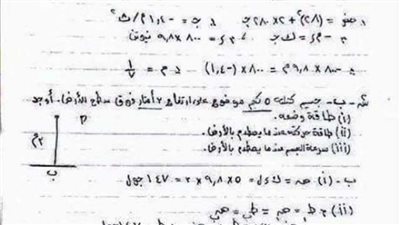 ∴ صفر = (٢٨)² + ٢×٢٨٠ جـ ∴ جـ = -١,٤٠ م/ث²
∴ - م ر = ك جـ ، ر = ٨٠٠ × ٩,٨ نيوتن
∴ -٨٠٠×٩,٨ م = ٨٠٠ × (-١,٤٠) ∴ م = ١/٧
- ب - جسم كتلته ٥ كجم موضوع على ارتفاع ٣ أمتار فوق سطح الأرض. أوجد
(i) طاقة وضعه.
(ii) طاقة حركته عندما يصطدم بالأرض.
(iii) سرعة الجسم عندما يصطدم بالأرض.
م
٣م
ب
ب - (i) ضـ = ك ء ل = ٥ × ٩,٨ × ٣ = ١٤٧ جول
(ii)